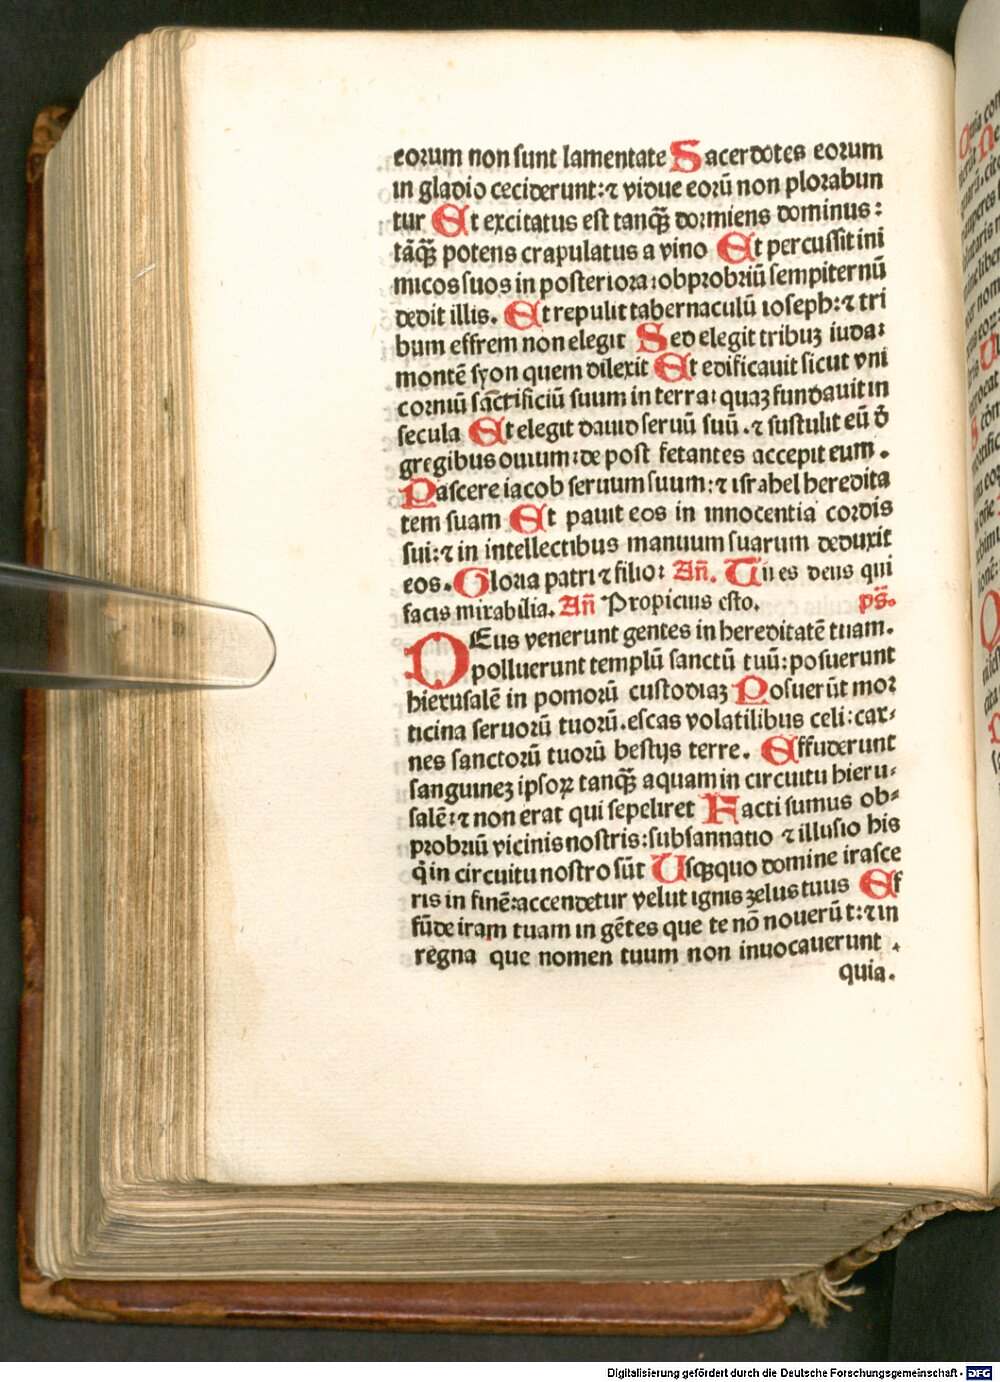 eorum non sunt lamentate Sacerdotes eorum
in gladio ceciderunt: ⁊ vidue eorū non plorabun
tur Et excitatus est tanq̄ȝ dormiens dominus:
tāq̄ȝ potens crapulatus a vino Et percussit ini
micos suos in posteriora: obprobriū sempiternū
dedit illis. Et repulit tabernaculū ioseph: ⁊ tri
bum effrem non elegit Sed elegit tribuȝ iuda:
montē syon quem dilexit Et edificauit sicut vni
corniū sāctificiū suum in terra: quaȝ fundauit in
secula Et elegit dauid seruū suū. ⁊ sustulit eū đ
gregibus ouium: de post fetantes accepit eum.
Pascere iacob seruum suum: ⁊ israhel heredita
tem suam Et pauit eos in innocentia cordis
sui: ⁊ in intellectibus manuum suarum deduxit
eos. Gloria patri ⁊ filio: Añ. Tu es deus qui
facis mirabilia. Añ Propicius esto. ps̄.
DEus venerunt gentes in hereditatē tuam.
polluerunt templū sanctū tuū: posuerunt
hierusalē in pomorū custodiaȝ Posuerūt mor
ticina seruorū tuorū. escas volatilibus celi: car-
nes sanctorū tuorū bestijs terre. Effuderunt
sanguineȝ ipsoꝝ tanq̄ȝ aquam in circuitu hieru-
salē: ⁊ non erat qui sepeliret Facti sumus ob-
probriū vicinis nostris: subsannatio ⁊ illusio his
q̇ in circuitu nostro sūt Usq̨quo domine irasce
ris in finē: accendetur velut ignis ȝelus tuus Ef
fūde iram tuam in gētes que te nō nouerūt: ⁊ in
regna que nomen tuum non inuocauerunt.
quia.
Digitalisierung gefördert durch die Deutsche Forschungsgemeinschaft - DFG